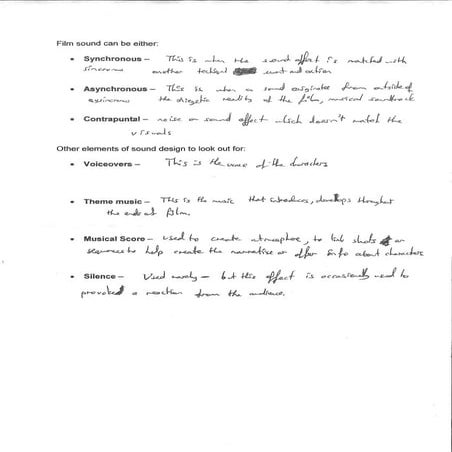 Film sound can be either:
• Synchronous – This is when the sound effect is matched with
sincrono another technical event and action
• Asynchronous – This is when a sound originates from outside of
asyncrono the diegetic reality of the film, musical soundtrack
• Contrapuntal – noise or sound effect which doesn't match the
visuals
Other elements of sound design to look out for:
• Voiceovers – This is the voice of the characters
• Theme music – This is the music that introduces, develops throughout
the ends at film.
• Musical Score – used to create atmosphere, to link shots or
sequences to help create the narrative or offer info about characters
• Silence – Used rarely – but this effect is occasionally used to
provoked a reaction from the audience.